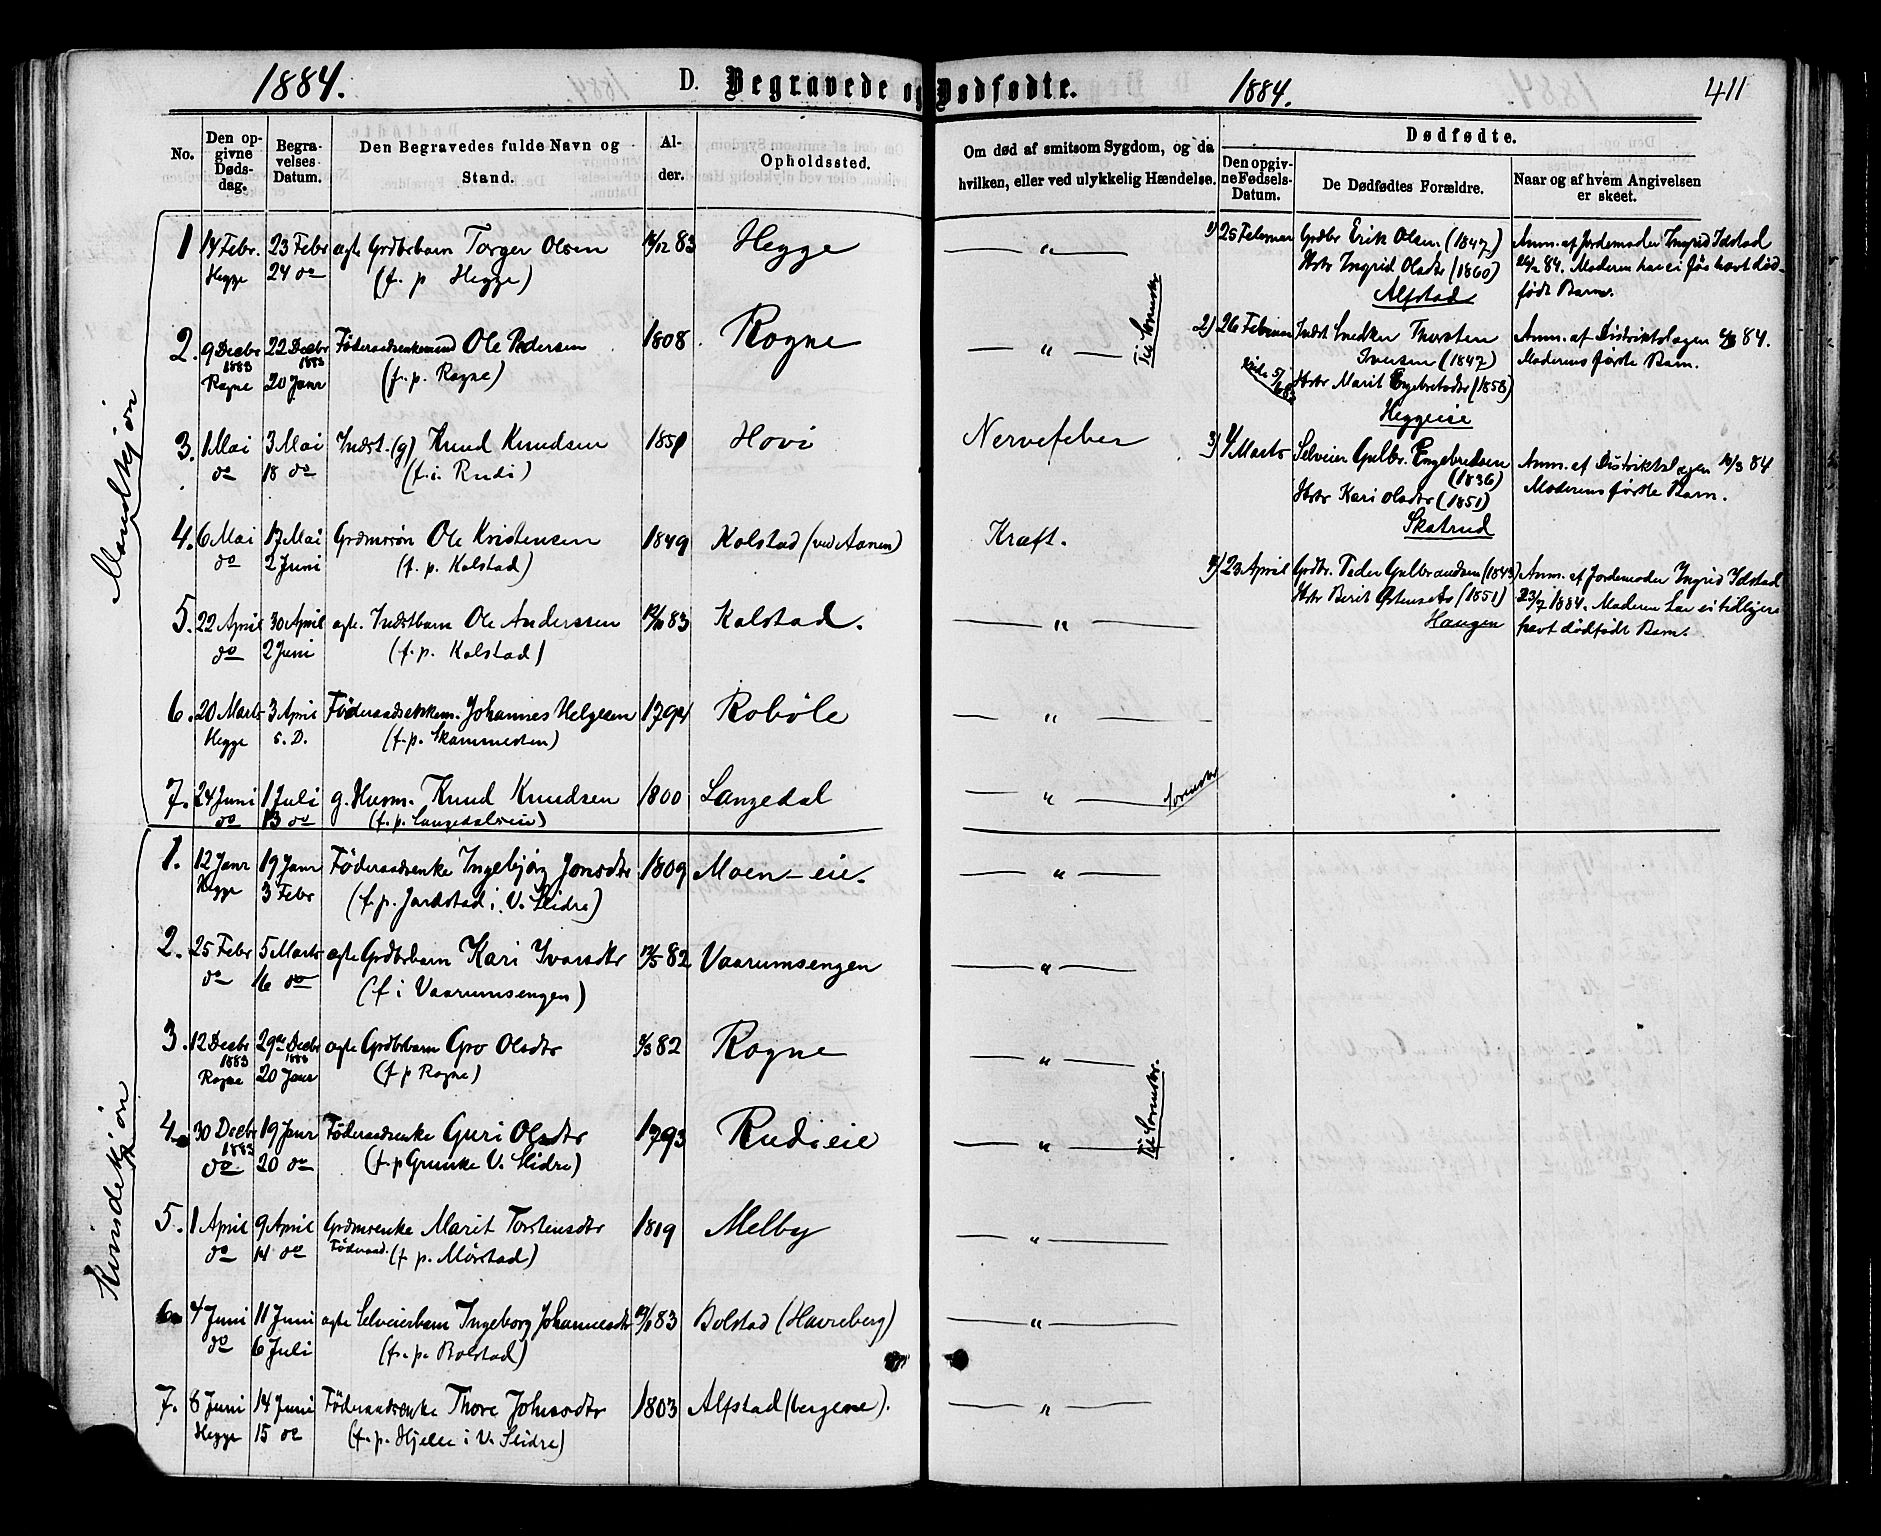 1884. D. Begravede og Dødfødte. 1884. 411
No. Den opgivne Dødsdag. Begravelses Datum. Den Begravedes fulde Navn og Stand. Alder. Opholdssted. Om død af smitsom Sygdom, og da hvilken, eller ved ulykkelig Hændelse.
Dødfødte.
Den opgivne Fødsels-Datum. De Dødfødtes Forældre. Naar og af hvem Angivelsen er skeet.
Mandkjøn
1 14 Febr. 23 Febr agte Grdbrbarn Torger Olsen 83 Hegge — " —
Hegge 24 do (f. p. Hegge)
2. 9 Decbr 22 Decbr Føderaadsenkemand Ole Pedersen 1808. Rogne — " —
1883 1883
Rogne 20 Janr (f. p. Rogne)
3. 1 Mai 3 Mai Indst. (g) Knud Knudsen 1851 Hovi Nervefeber
do 18 do (f. i. Rudi)
4. 6 Mai 17 Mai Grdmsøn Ole Kristensen 1849 Kolstad (ved Aanen) Kræft.
do 2 Juni (f. p. Kolstad)
5. 22 April 30 April agte. Indstbarn Ole Anderssen 83 Kolstad. — " —
do 2 Juni (f. p. Kolstad)
6. 20 Marts 3 April Føderaadsenkem. Johannes Helgesen 1794 Robøle — " —
Hegge s. D. (f. p. Skammesten)
7. 24 Juni 1 Juli g. Husm. Knud Knudsen 1800 Langedal — " —
do 13 do (f. p. Langedalseie)
Kvindekjøn
1. 12 Janr 19 Janr Føderaadsenke Ingebjørg Jonsdtr 1809 Moen-eie. — " —
Hegge 3 Febr (f. p. Jardstad i V. Slidre)
2. 25 Febr 5 Marts agte Grdbrbarn Kari Ivarsdtr 82 Vaarumsengen — " —
do 16 do (f i Vaarumsengen)
3. 12 Decbr 29de Decbr agte Grdbrbarn Gro Olsdtr 82 Rogne — " —
1883 1883
Rogne 20 Janr (f p Rogne)
4. 30 Decbr 19 Janr Føderaadsenke Guri Olsdtr 1793 Rudieie — " —
1883
do. 20 do (f. p Grunke V. Slidre)
5. 1 April 9 April Grdmenke Marit Torstensdtr 1819 Melby — " —
do 14 do Føderaad. (f. p. Mørstad)
6 4 Juni 11 Juni agte Selveierbarn Ingeborg Johannesdtr 83 Bolstad (Havreberg) — " —
do 6 Juli (f. p. Bolstad)
7. 8 Juni 14 Juni Føderaadsenke Thore Johnsdtr 1803 Alfstad (bergene). — " —
Hegge 15 do (f. p. Hjelle i V. Slidre)
1) 25 Februar Grdbr Erik Olsen (1847) Anm. af Jordemoder Ingrid Idstad
Hstr Ingrid Olsdtr (1860) 84. Moderen har ei før havt død-
Alfstad født Barn.
2) 26 Februar Indst Snedker Thorsten Anm. af Distriktslægen 84.
Iversen (1847) Moderens første Barn.
Hstr Marit Engebretsdtr (1858)
Heggeeie
3) 4 Marts Selveier Gulbr. Engebredsen Anm. af Distriktslægen 10/3 84
(1836) Moderens første Barn.
Hstr Kari Olsdtr (1851)
Skatrud
4) 23 April Grdbr. Peder Gulbrandsen (1843) Anm. af Jordemoder Ingrid Idstad
Hstr Berit Østensdtr (1851) 23/7 1884. Moderen har ei tidligere
Haugen havt dødfødt Barn.